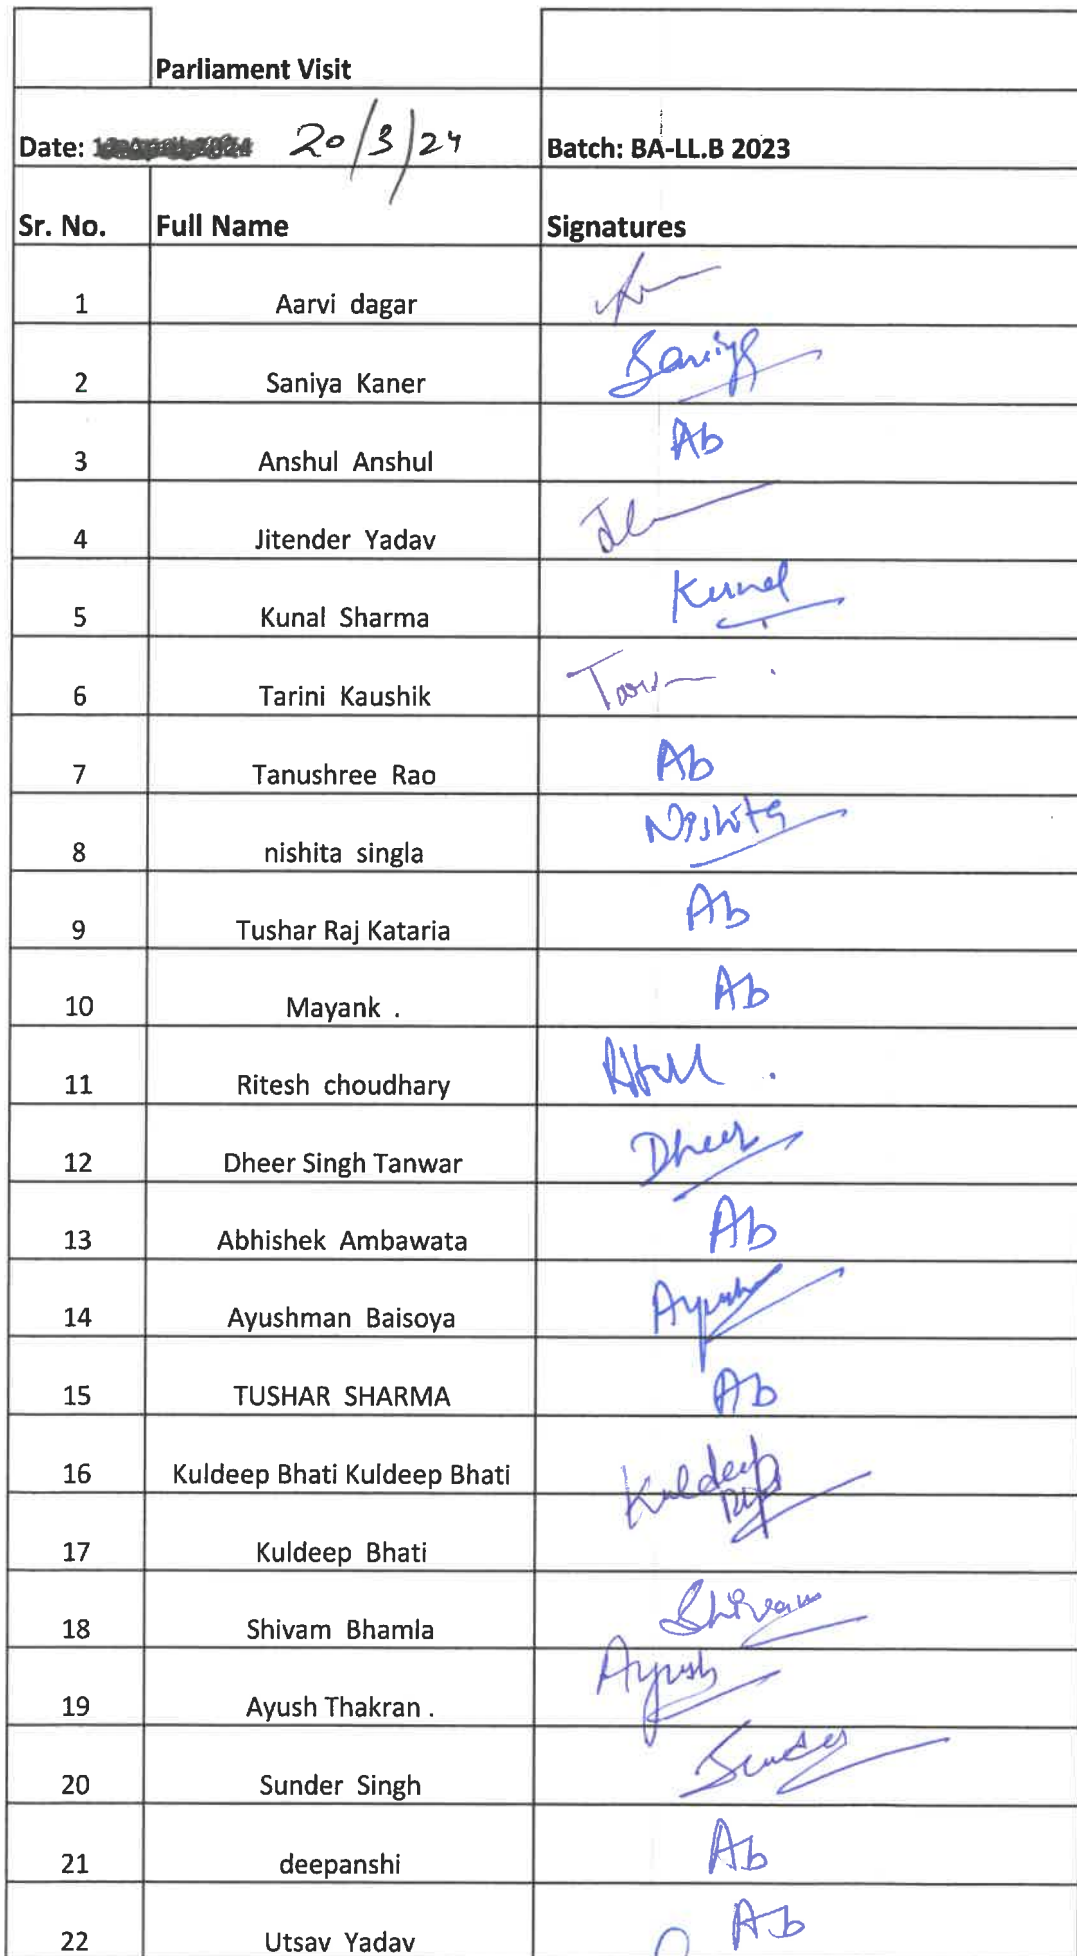 Parliament Visit
Date: 20/3/24 Batch: BA-LL.B 2023
Sr. No. Full Name Signatures
1 Aarvi dagar
2 Saniya Kaner Saniya
3 Anshul Anshul Ab
4 Jitender Yadav
5 Kunal Sharma Kunal
6 Tarini Kaushik
7 Tanushree Rao Ab
8 nishita singla Nishita
9 Tushar Raj Kataria Ab
10 Mayank . Ab
11 Ritesh choudhary
12 Dheer Singh Tanwar Dheer
13 Abhishek Ambawata Ab
14 Ayushman Baisoya Ayush
15 TUSHAR SHARMA Ab
16 Kuldeep Bhati Kuldeep Bhati Kuldeep
17 Kuldeep Bhati
18 Shivam Bhamla Shivam
19 Ayush Thakran . Ayush
20 Sunder Singh Sunder
21 deepanshi Ab
22 Utsav Yadav Ab